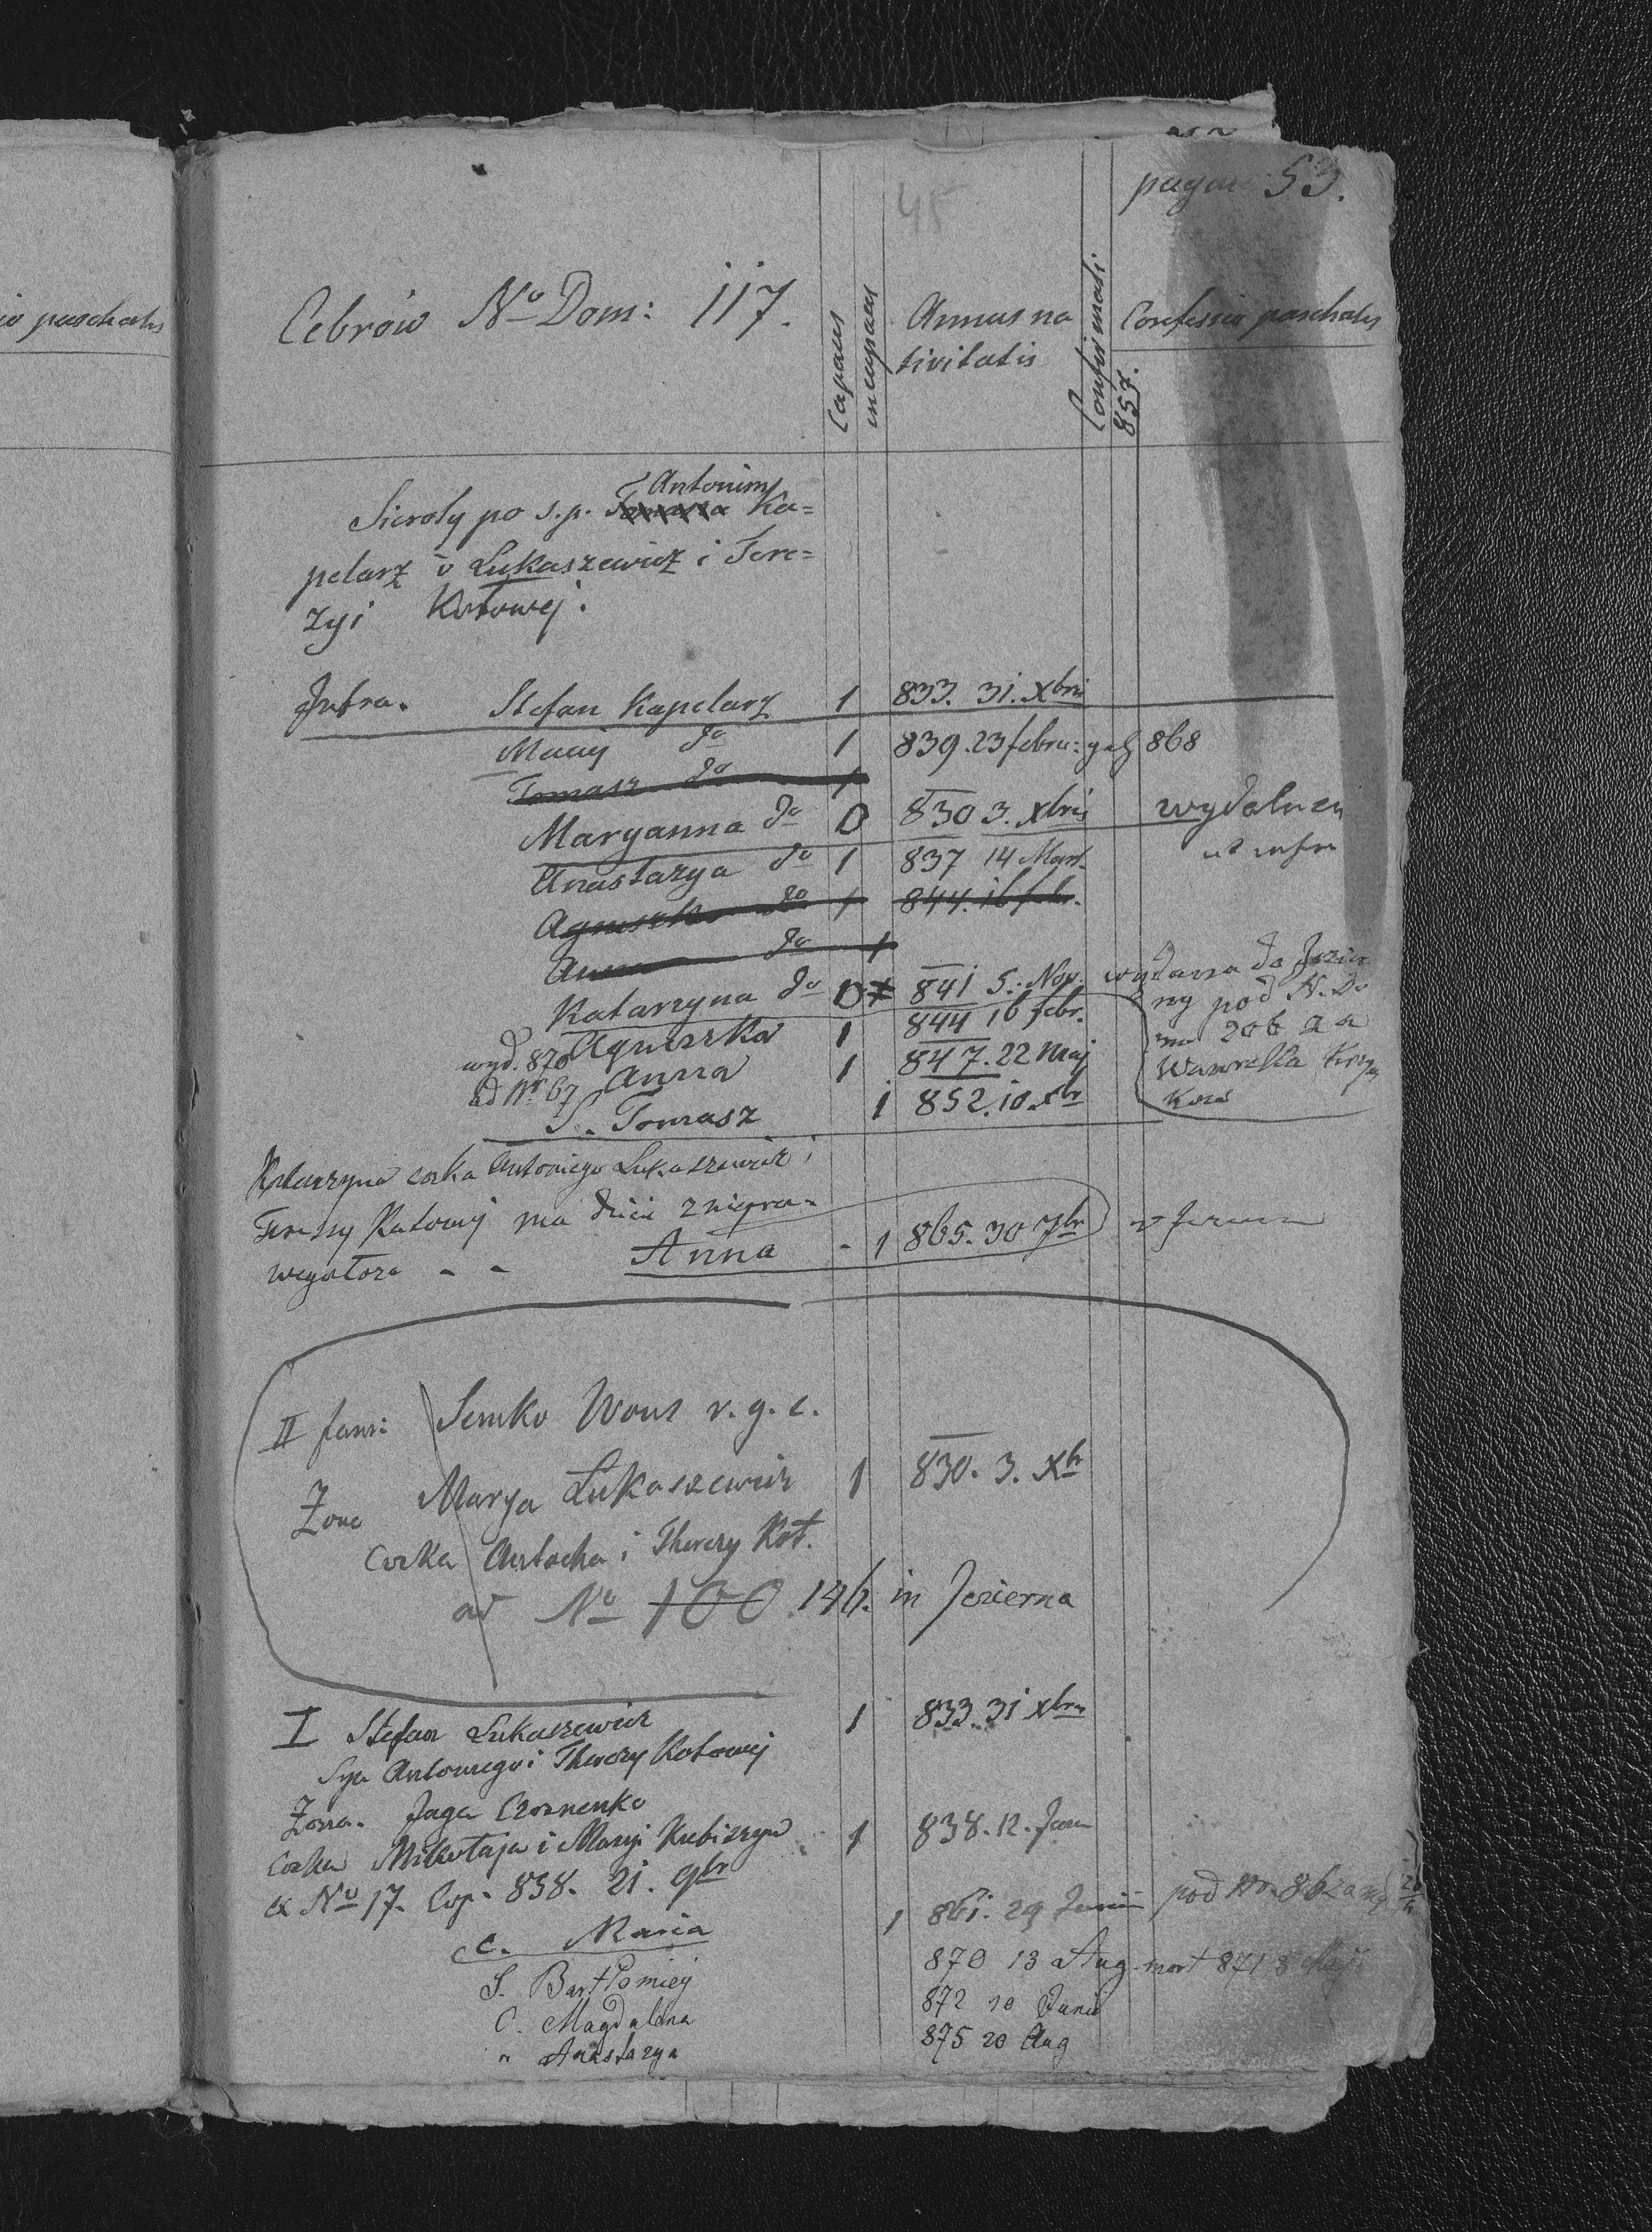 io paschalis
45
pagina 53.
Cebrów No Dom: 117.
Capaces
incapaces
Annus na
tivitatis
Confirmati
857.
Confessio paschalis
Antonim
Sieroty po s.p. Tomasza Ka=
pelarz v Łukaszewicz i Tere=
zyi Kotowej.
Infra. Stefan Kapelarz 1 833. 31. Xbris
Maciej do 1 839. 23 febru: 868
Tomasz do 1
Maryanna do 0 830 3. Xbris
ut infra
Anastazya do 1 837 14 Mart.
Agnieszka do 1 844. 16 febr.
Anna do 1
Katarzyna do 0 841 5. Nov. wydana do Jezier
ny pod N. Do
Agnieszka 1 844 16 febr.
206 a a
wyd. 870
ad No 67 Anna 1 847. 22 Maj
Wawrzka
S. Tomasz 1 852. 10. Xbr
Katarzyna corka Antoniego Łukaszewicz i
Teressy Kotowej ma dzieci z niepra=
wegołoża - - Anna - 1 865. 30 7br
II fam: Semko Wons r. g. c.
Żona Marya Łukaszewicz 1 830. 3. Xbr
Corka Antocha i Therezy Kot.
ad No 100 146. in Jezierna
I Stefan Łukaszewicz 1 833. 31 Xbris
Syn Antoniego i Therezy Kotowej
Żona. Jaga Czornenko
Corka Mikołaja i Maryi Kubiszyn 1 838. 12. Jan
ex No 17. Cop. 858. 21. 9br
c. Maria 1 861. 29 Junii pod No.
S. Bartłomiej 870 13 Aug. mort 871 8 Maji
C. Magdalena 872 10 Junii
" Anastazya 875 20 Aug